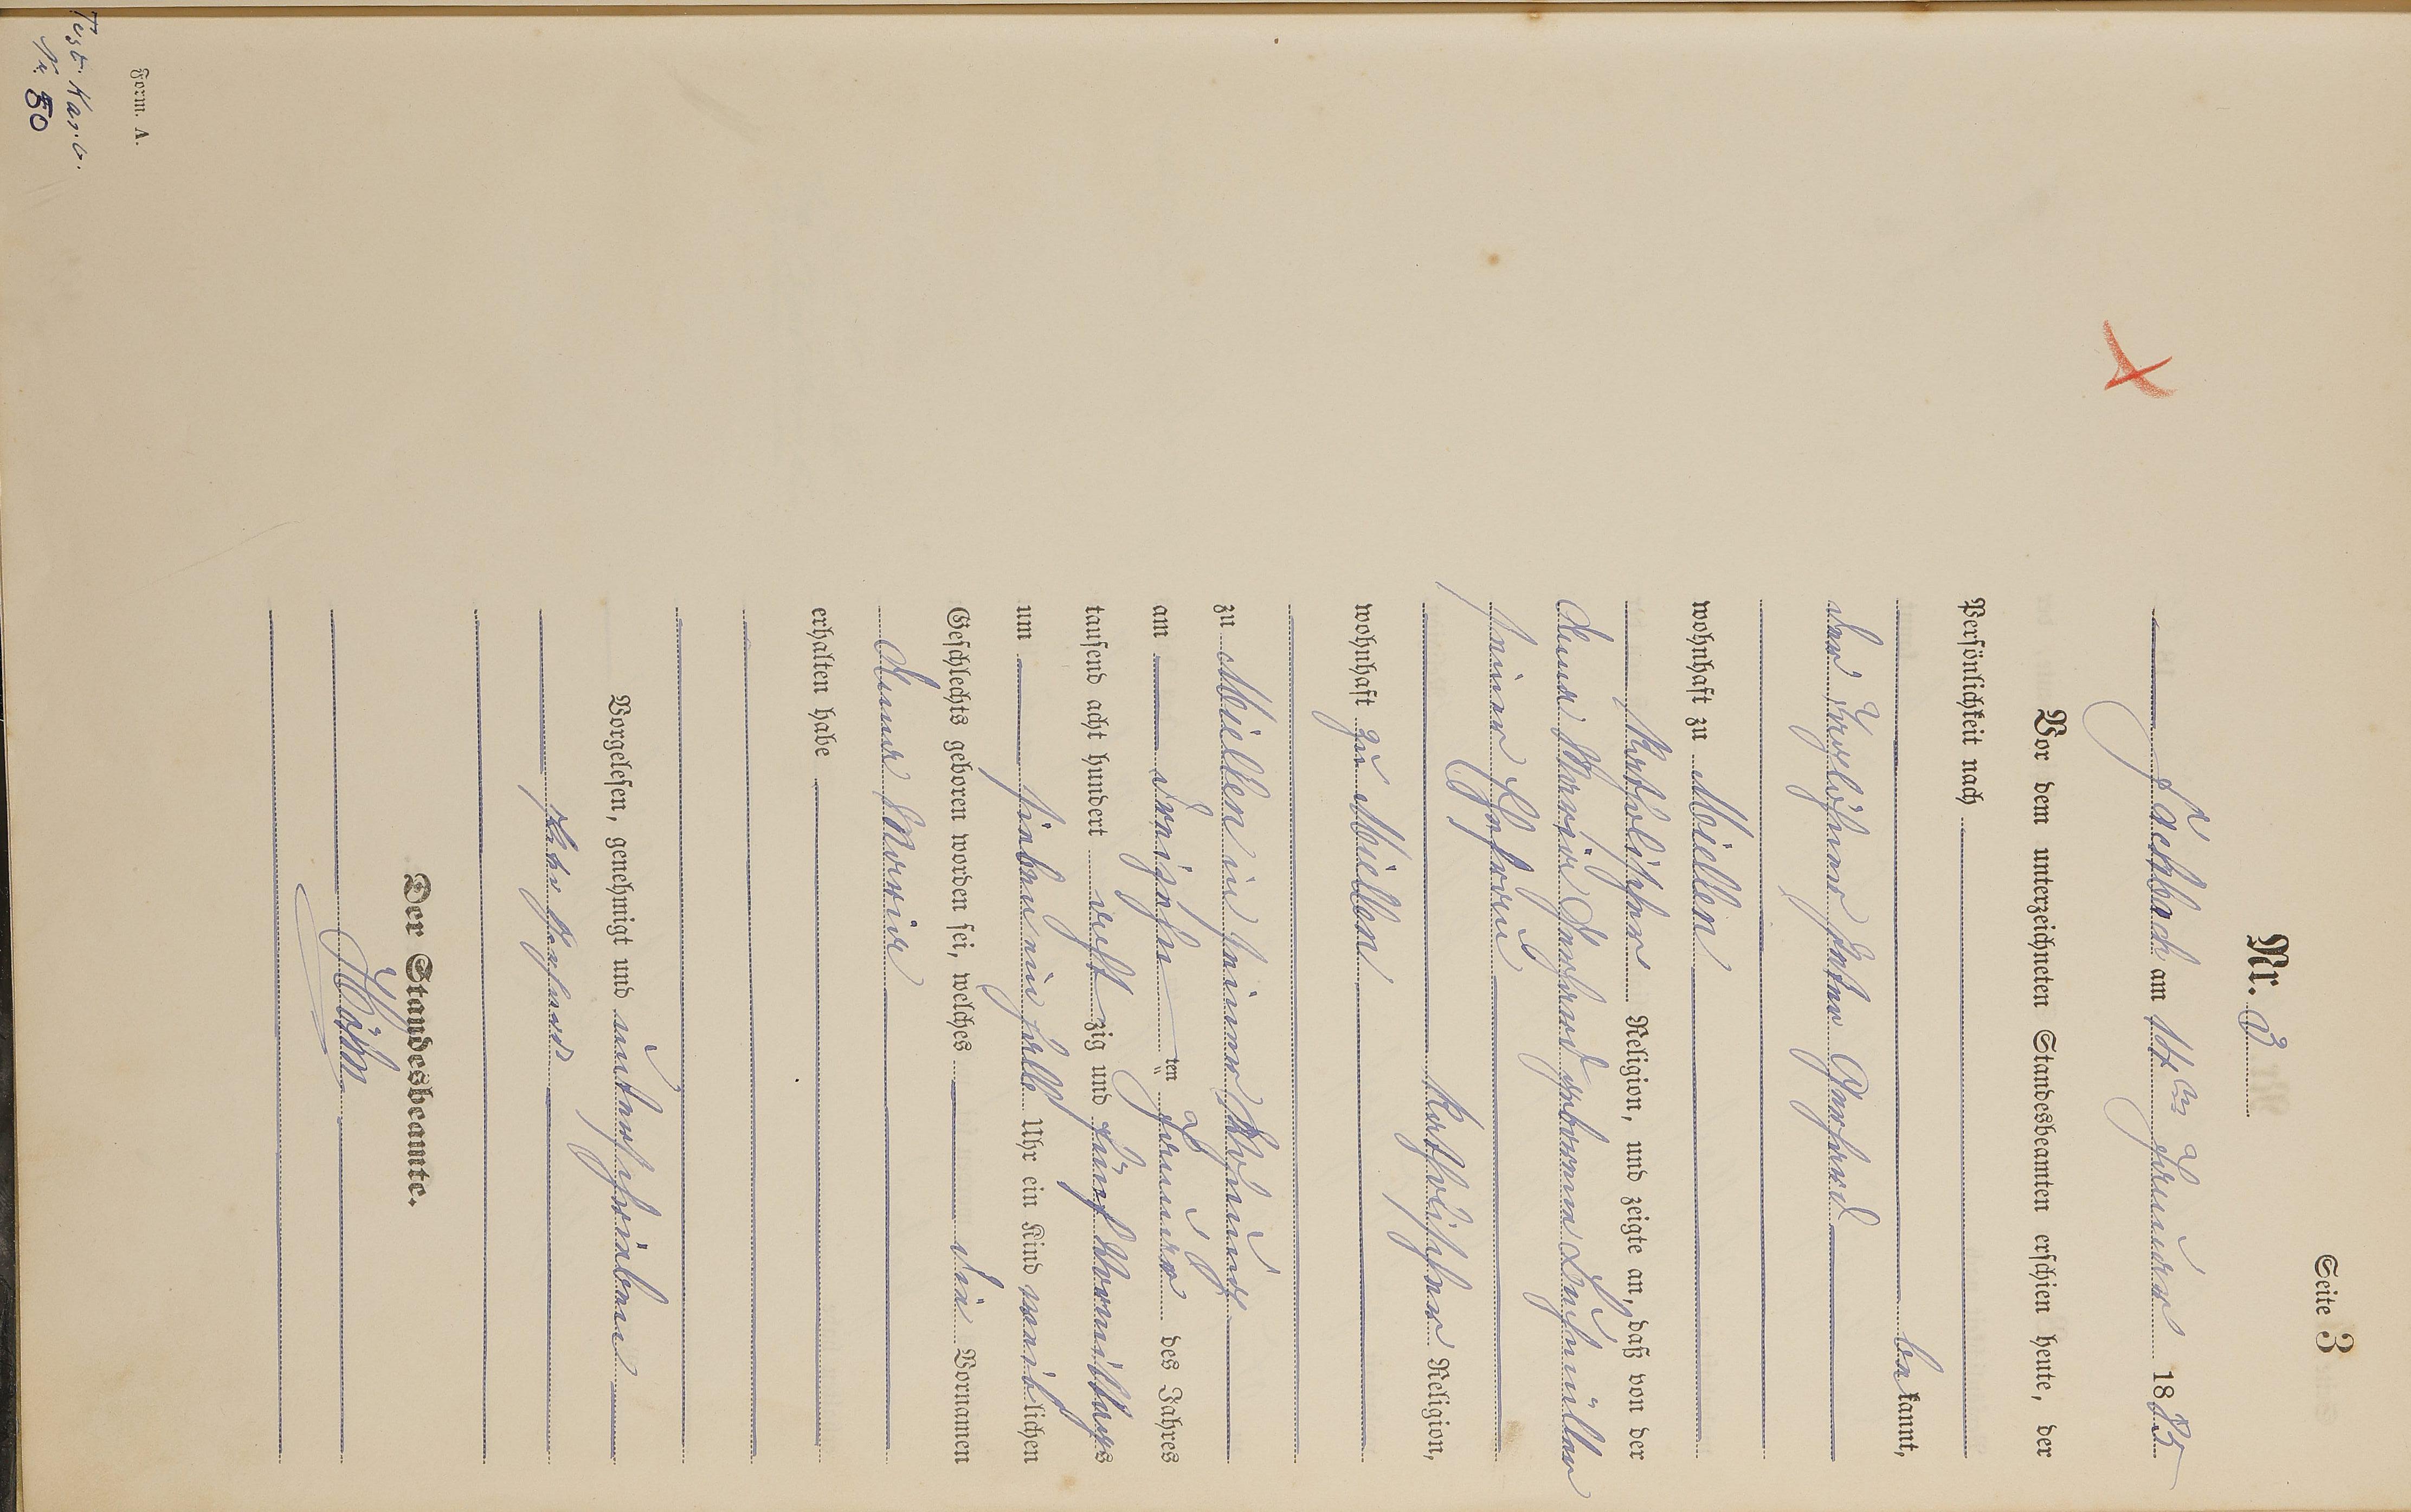 Seite 3
Nr. 3
Fachbach am 14ten Januar 1885
Vor dem unterzeichneten Standesbeamten erschien heute, der
Persönlichkeit nach
bekannt,
der Taglöhner Peter Gerhard
wohnhaft zu Miellen
katholischer Religion, und zeigte an, daß von der
Anna Maria Gerhard geborene
seiner Ehefrau
katholischer Religion,
wohnhaft zu Miellen
zu Miellen in seiner Wohnung
am dreizehnten Januar des Jahres
tausend acht hundert achtzig und fünf Vormittags
um sieben ein halb Uhr ein Kind weiblichen
Geschlechts geboren worden sei, welches die Vornamen
Anna Maria
erhalten habe
Vorgelesen, genehmigt und unterschrieben
Peter Gerhard
Der Standesbeamte.
Höhn
Form. A.
Test. Kart.
Nr. 50